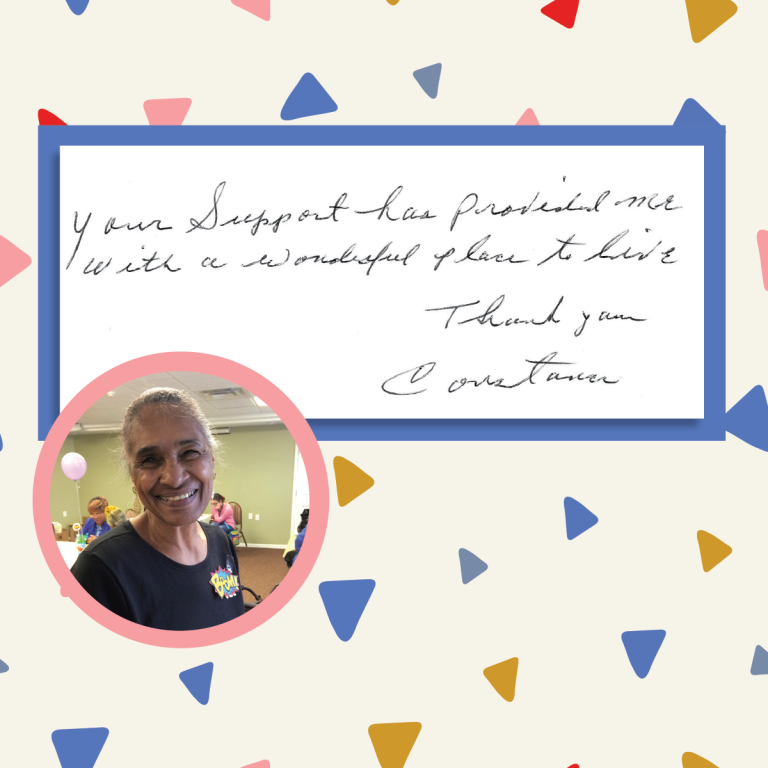 Your Support has provided me
with a wonderful place to live
Thank you
Constance